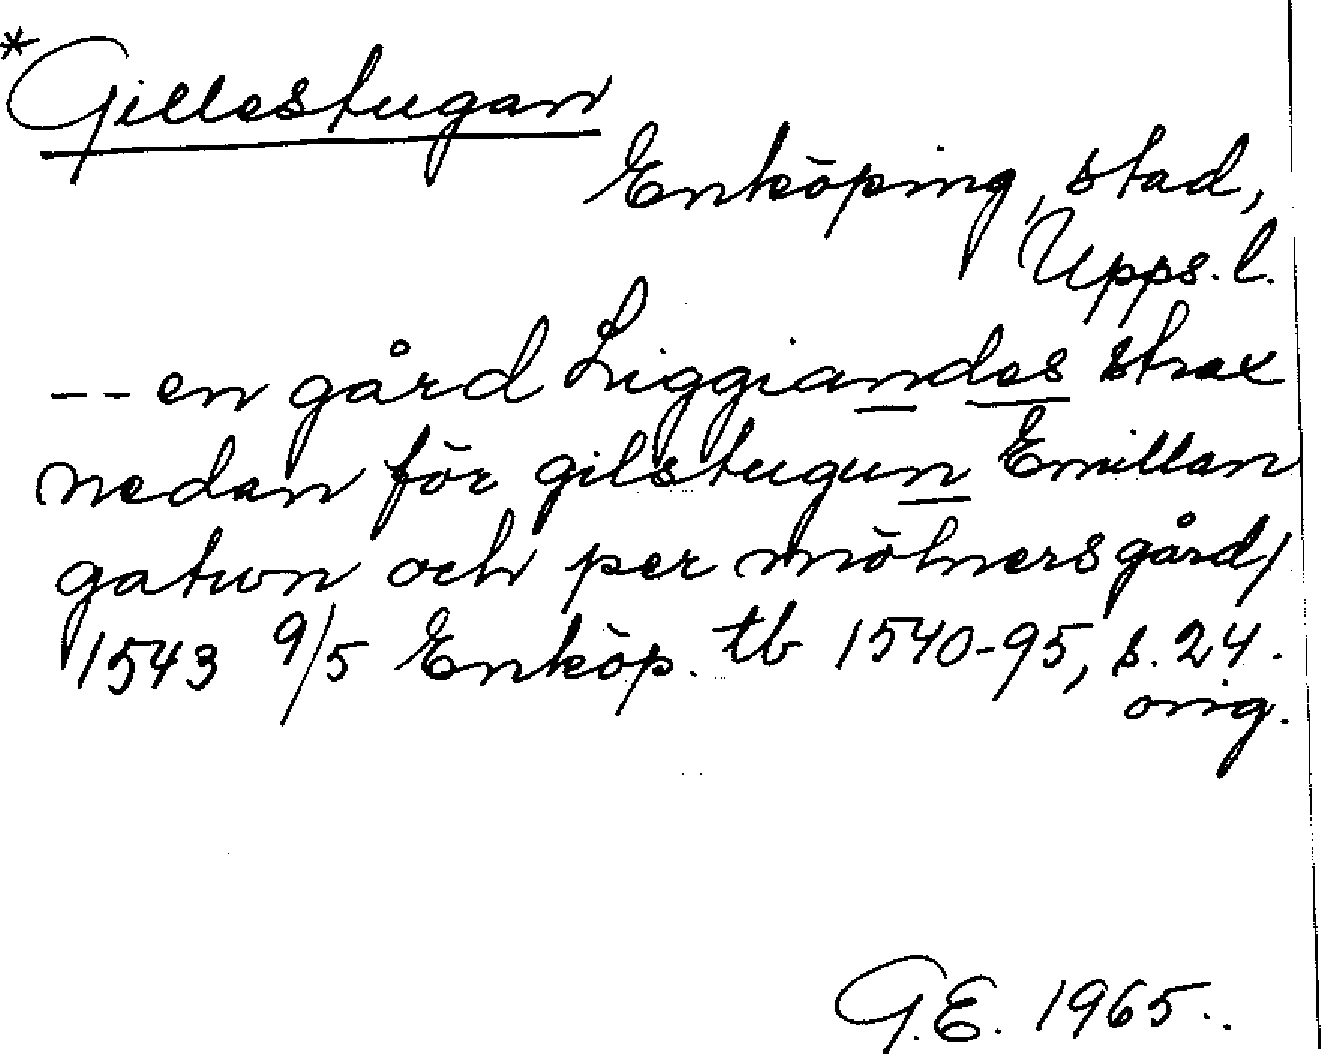 *Gillestugan
Enköping, stad,
Upps. l.
-- en gård Liggiandes strax
nedan för gilstugun Emillan
gatwn och per mölners gård/
1543 9/5 Enköp. tb 1540-95, s. 24.
orig.
G.E. 1965.